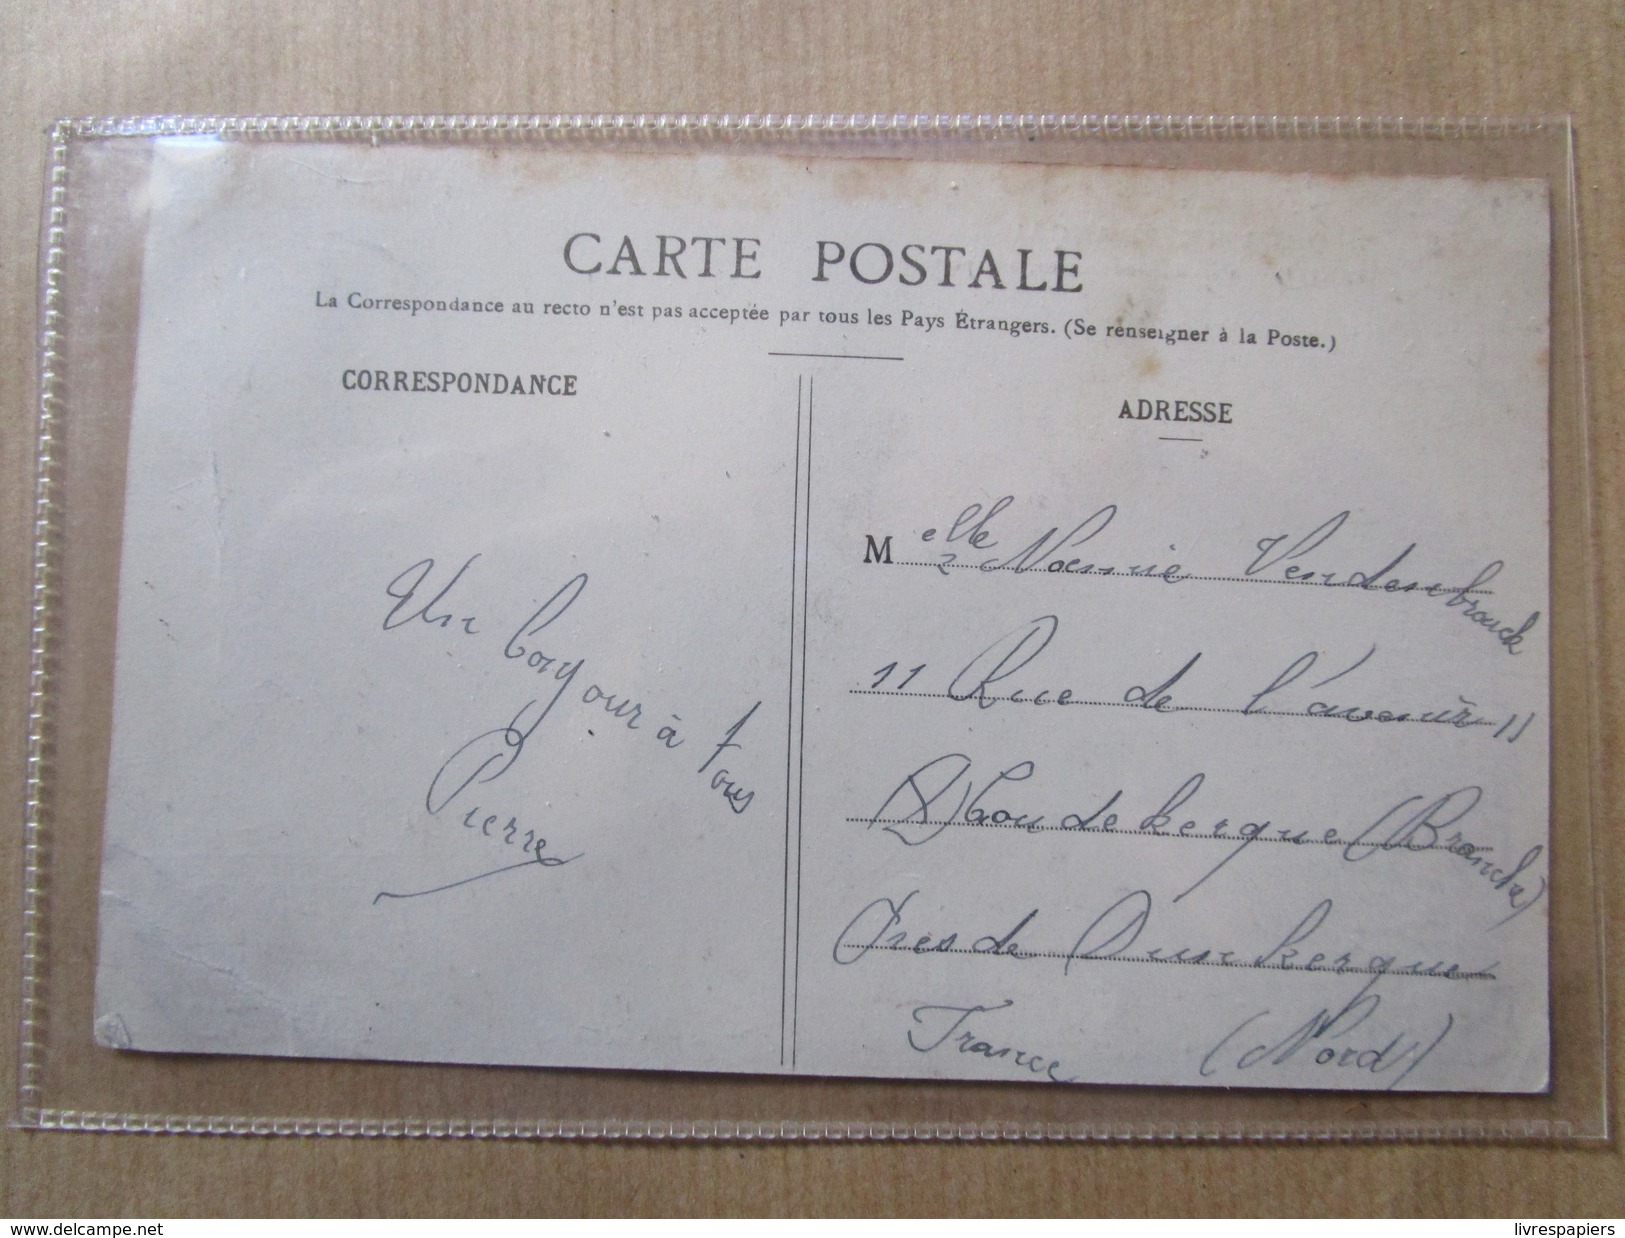 CARTE POSTALE
La Correspondance au recto n'est pas acceptée par tous les Pays Étrangers. (Se renseigner à la Poste.)
CORRESPONDANCE
Un bonjour à tous
Pierre
ADRESSE
Melle Noemie Vendenbrouck
11 Rue de l'avenir 11
Coudekerque (Branche)
Près de Dunkerque
France (Nord)
www.delcampe.net
livrespapiers